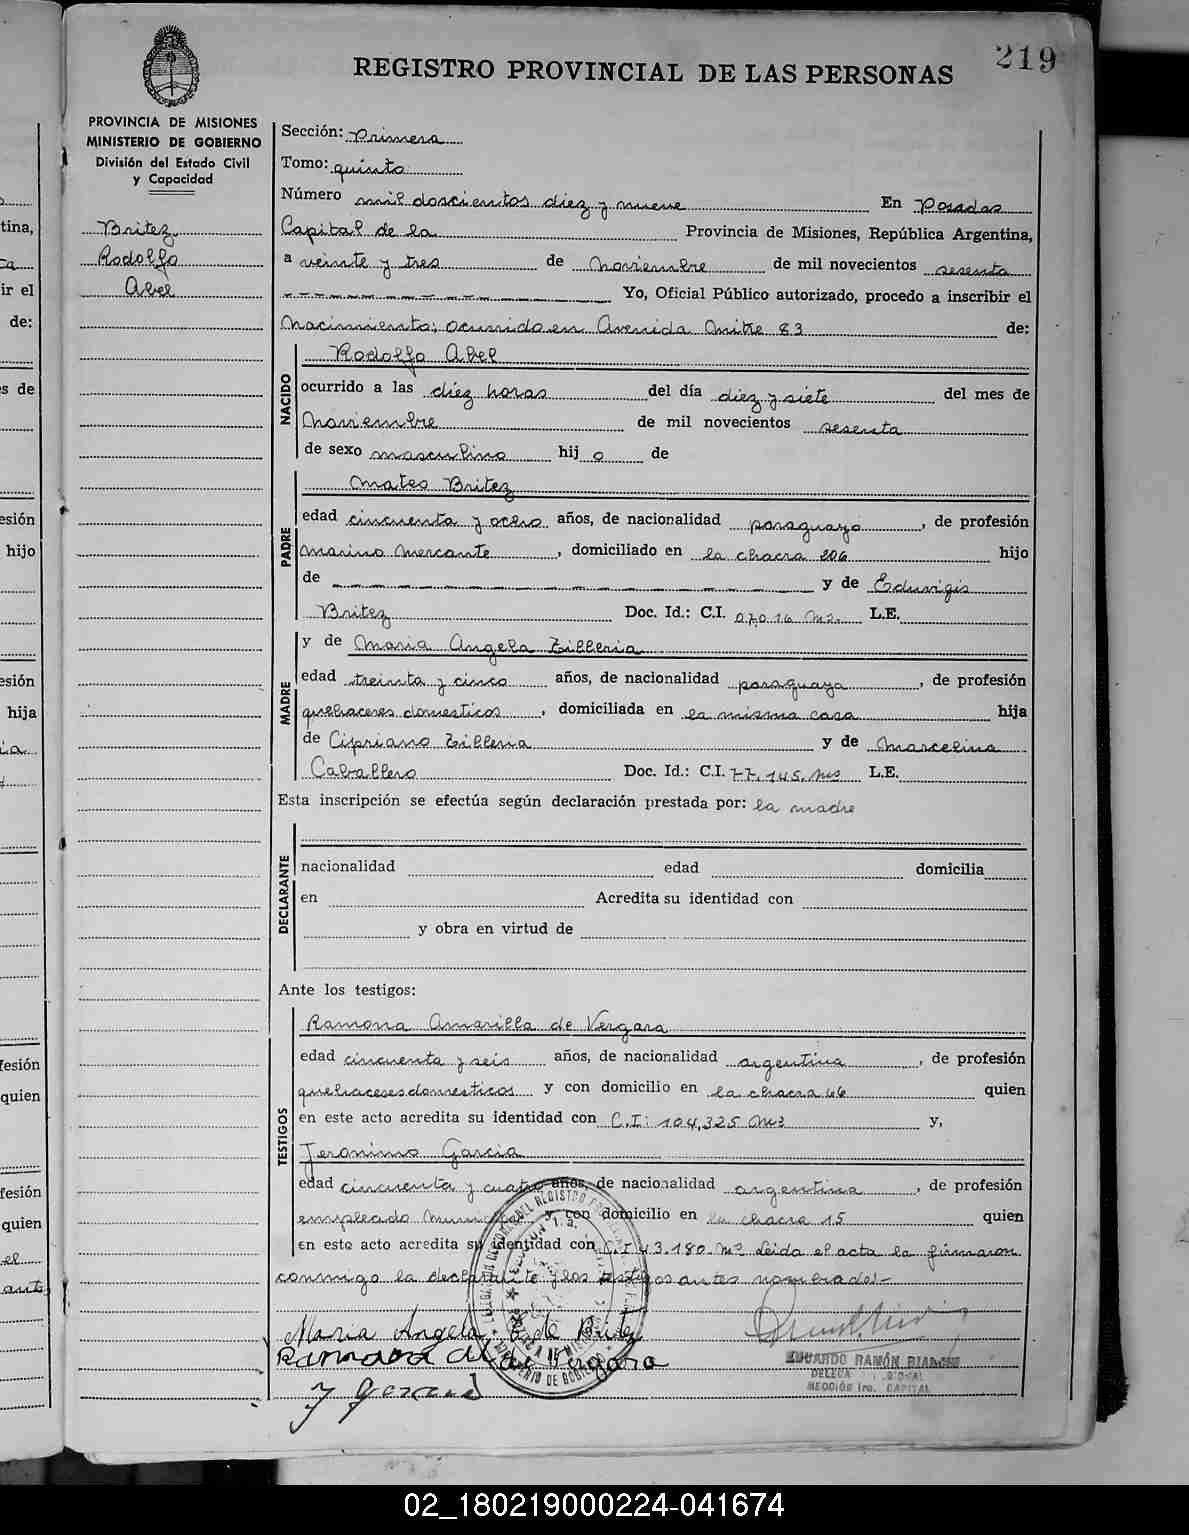 219
REGISTRO PROVINCIAL DE LAS PERSONAS
PROVINCIA DE MISIONES
MINISTERIO DE GOBIERNO
División del Estado Civil
y Capacidad
Britez
Rodolfo
Abel
Sección: Primera
Tomo: quinto
Número mil doscientos diez y nueve En Posadas
Capital de la Provincia de Misiones, República Argentina,
a veinte y tres de Noviembre de mil novecientos sesenta
Yo, Oficial Público autorizado, procedo a inscribir el
Nacimiento; ocurrido en Avenida Mitre 83 de:
NACIDO
Rodolfo Abel
ocurrido a las diez horas del día diez y siete del mes de
Noviembre de mil novecientos sesenta
de sexo masculino hijo de
PADRE
Mateo Britez
edad cincuenta y ocho años, de nacionalidad paraguayo, de profesión
Marino Mercante, domiciliado en la chacra 206 hijo
de y de Eduvigis
Britez Doc. Id.: C.I. 07016 Ms. L.E.
y de Maria Angela Zilleria
MADRE
edad treinta y cinco años, de nacionalidad paraguaya, de profesión
quehaceres domesticos, domiciliada en la misma casa hija
de Cipriano Zilleria y de Marcelina
Caballero Doc. Id.: C.I. 77.145. Mns L.E.
Esta inscripción se efectúa según declaración prestada por: la madre
DECLARANTE
nacionalidad edad domicilia
en Acredita su identidad con
y obra en virtud de
Ante los testigos:
TESTIGOS
Ramona Amarilla de Vergara
edad cincuenta y seis años, de nacionalidad argentina, de profesión
quehaceres domesticos y con domicilio en la chacra 66 quien
en este acto acredita su identidad con C.I: 104,325 Mns y,
Jeronimo Garcia
edad cincuenta y cuatro años, de nacionalidad argentina, de profesión
empleado Municipal y con domicilio en la chacra 15 quien
en este acto acredita su identidad con C.I 43.180. Mns Leida el acta la firmaron
conmigo la declarante y los testigos antes nombrados-
Maria Angela Z de Britez
Ramona A de Vergara
EDUARDO RAMÓN
SECCIÓN 1ra. CAPITAL
02_180219000224-041674